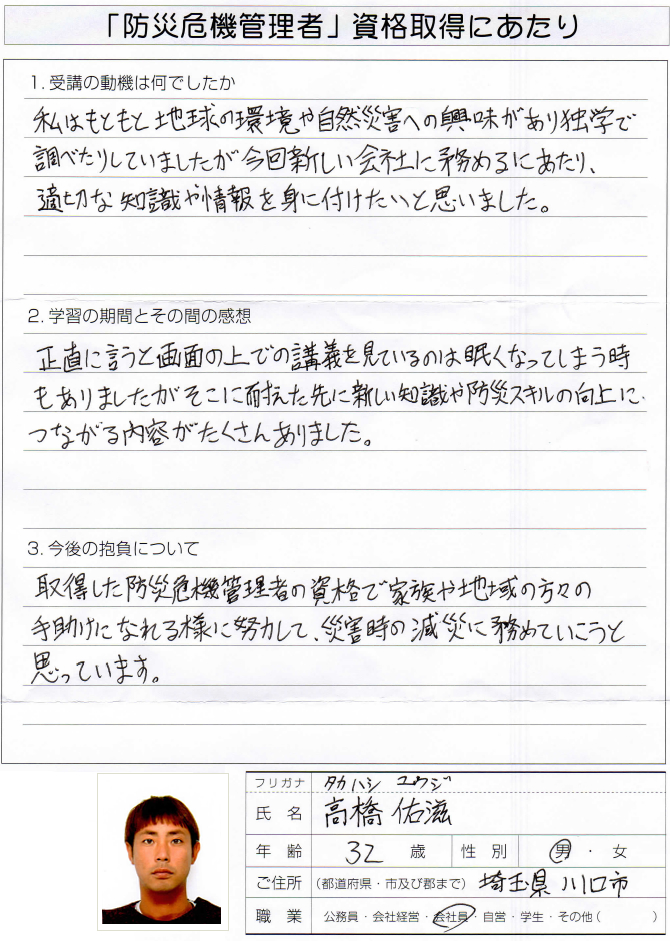 「防災危機管理者」資格取得にあたり
1. 受講の動機は何でしたか
私はもともと地球の環境や自然災害への興味があり独学で
調べたりしていましたが今回新しい会社に務めるにあたり、
適切な知識や情報を身に付けたいと思いました。
2. 学習の期間とその間の感想
正直に言うと画面の上での講義を見ているのは眠くなってしまう時
もありましたがそこに耐えた先に新しい知識や防災スキルの向上に
つながる内容がたくさんありました。
3. 今後の抱負について
取得した防災危機管理者の資格で家族や地域の方々の
手助けになれる様に努力して、災害時の減災に務めていこうと
思っています。
フリガナ タカハシ ユウジ
氏名 高橋 佑滋
年齢 32 歳 性別 男・女
ご住所 (都道府県・市及び郡まで) 埼玉県 川口市
職業 公務員・会社経営・会社員・自営・学生・その他( )